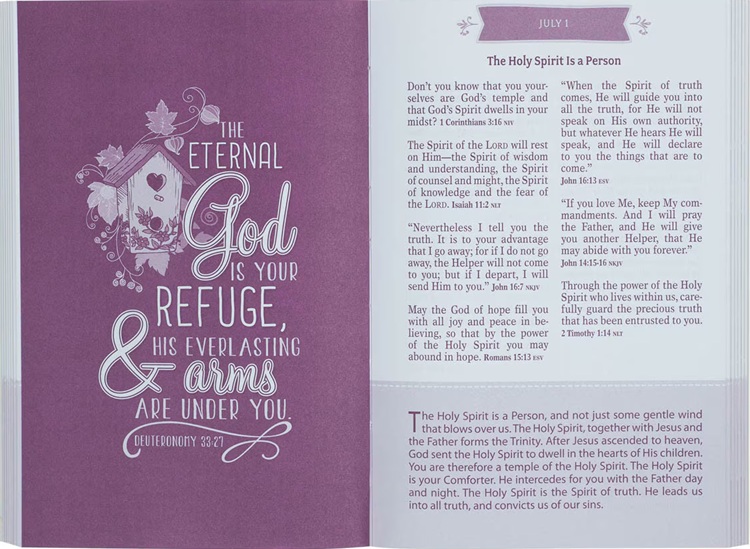 THE
ETERNAL
God
IS YOUR
REFUGE,
& HIS EVERLASTING
arms
ARE UNDER YOU.
DEUTERONOMY 33:27
JULY 1
The Holy Spirit Is a Person
Don't you know that you your-
selves are God's temple and
that God's Spirit dwells in your
midst? 1 Corinthians 3:16 NIV
The Spirit of the LORD will rest
on Him—the Spirit of wisdom
and understanding, the Spirit
of counsel and might, the Spirit
of knowledge and the fear of
the LORD. Isaiah 11:2 NLT
"Nevertheless I tell you the
truth. It is to your advantage
that I go away; for if I do not go
away, the Helper will not come
to you; but if I depart, I will
send Him to you." John 16:7 NKJV
May the God of hope fill you
with all joy and peace in be-
lieving, so that by the power
of the Holy Spirit you may
abound in hope. Romans 15:13 ESV
"When the Spirit of truth
comes, He will guide you into
all the truth, for He will not
speak on His own authority,
but whatever He hears He will
speak, and He will declare
to you the things that are to
come."
John 16:13 ESV
"If you love Me, keep My com-
mandments. And I will pray
the Father, and He will give
you another Helper, that He
may abide with you forever."
John 14:15-16 NKJV
Through the power of the Holy
Spirit who lives within us, care-
fully guard the precious truth
that has been entrusted to you.
2 Timothy 1:14 NLT
The Holy Spirit is a Person, and not just some gentle wind
that blows over us. The Holy Spirit, together with Jesus and
the Father forms the Trinity. After Jesus ascended to heaven,
God sent the Holy Spirit to dwell in the hearts of His children.
You are therefore a temple of the Holy Spirit. The Holy Spirit
is your Comforter. He intercedes for you with the Father day
and night. The Holy Spirit is the Spirit of truth. He leads us
into all truth, and convicts us of our sins.